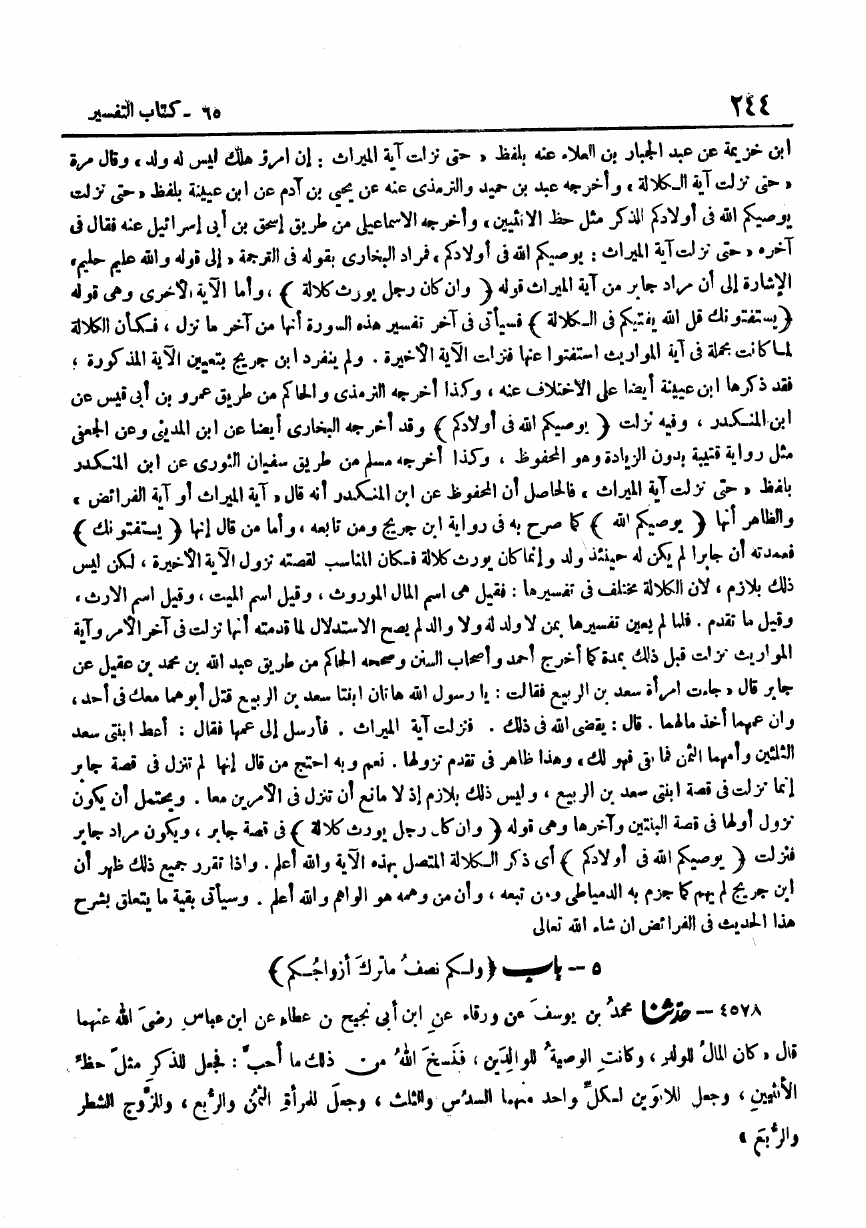 ٢٤٤
٦٥ - كتاب التفسير
ابن خزيمة عن عبد الجبار بن العلاء عنه بلفظ « حتى نزلت آية الميراث : إن امرؤ هلك ليس له ولد ، وقال مرة
« حتى نزلت آية الكلالة ، وأخرجه عبد بن حميد والترمذى عنه عن يحيى بن آدم عن ابن عيينة بلفظ « حتى نزلت
يوصيكم الله فى أولادكم الذكر مثل حظ الانثيين ، وأخرجه الاسماعيلى من طريق إسحق بن أبى إسرائيل عنه فقال فى
آخره « حتى نزلت آية الميراث : يوصيكم الله فى أولادكم ، فمراد البخارى بقوله فى الترجمة « إلى قوله والله عليم حليم ،
الإشارة إلى أن مراد جابر من آية الميراث قوله ﴿ وان كان رجل يورث كلالة ﴾ ، وأما الآية الأخرى وهى قوله
﴿ يستفتونك قل الله يفتيكم فى الكلالة ﴾ فسيأتى فى آخر تفسير هذه السورة أنها من آخر ما نزل ، فكأن الكلالة
لما كانت مجملة فى آية المواريث استفتوا عنها فنزلت الآية الأخيرة . ولم ينفرد ابن جريج بتعيين الآية المذكورة ،
فقد ذكرها ابن عيينة أيضا على الاختلاف عنه ، وكذا أخرجه الترمذى والحاكم من طريق عمرو بن أبى قيس عن
ابن المنكدر ، وفيه نزلت ﴿ يوصيكم الله فى أولادكم ﴾ وقد أخرجه البخارى أيضا عن ابن المدينى وعن الجعفى
مثل رواية قتيبة بدون الزيادة وهو المحفوظ ، وكذا أخرجه مسلم من طريق سفيان الثورى عن ابن المنكدر
بلفظ « حتى نزلت آية الميراث ، فالحاصل أن المحفوظ عن ابن المنكدر أنه قال « آية الميراث أو آية الفرائض ،
والظاهر أنها ﴿ يوصيكم الله ﴾ كما صرح به فى رواية ابن جريج ومن تابعه ، وأما من قال إنها ﴿ يستفتونك ﴾
فعمدته أن جابرا لم يكن له حينئذ ولد وإنما كان يورث كلالة فكان المناسب لقصته نزول الآية الأخيرة ، لكن ليس
ذلك بلازم ، لان الكلالة مختلف فى تفسيرها : فقيل هى اسم المال الموروث ، وقيل اسم الميت ، وقيل اسم الارث ،
وقيل ما تقدم . فلما لم يعين تفسيرها بمن لا ولد له ولا والد لم يصح الاستدلال لما قدمته أنها نزلت فى آخر الأمر وآية
المواريث نزلت قبل ذلك بمدة كما أخرج أحمد وأصحاب السنن وصححه الحاكم من طريق عبد الله بن محمد بن عقيل عن
جابر قال « جاءت امرأة سعد بن الربيع فقالت : يا رسول الله هاتان ابنتا سعد بن الربيع قتل أبوهما معك فى أحد ،
وان عمهما أخذ مالهما . قال : يقضى الله فى ذلك . فنزلت آية الميراث . فأرسل إلى عمهما فقال : أعط ابنتى سعد
الثلثين وأمهما الثمن فما بقى فهو لك ، وهذا ظاهر فى تقدم نزولها . نعم وبه احتج من قال إنها لم تنزل فى قصة جابر
إنما نزلت فى قصة ابنتى سعد بن الربيع ، وليس ذلك بلازم إذ لا مانع أن تنزل فى الأمرين معا . ويحتمل أن يكون
نزول أولها فى قصة البنتين وآخرها وهى قوله ﴿ وان كان رجل يورث كلالة ﴾ فى قصة جابر ، ويكون مراد جابر
فنزلت ﴿ يوصيكم الله فى أولادكم ﴾ أى ذكر الكلالة المتصل بهذه الآية والله أعلم . واذا تقرر جميع ذلك ظهر أن
ابن جريج لم يهم كما جزم به الدمياطى ومن تبعه ، وأن من وهمه هو الواهم والله أعلم . وسيأتى بقية ما يتعلق بشرح
هذا الحديث فى الفرائض ان شاء الله تعالى
٥ - باب ﴿ ولكم نصفُ ماتركَ أزواجُكم ﴾
٤٥٧٨ - حدّثنا محمدُ بن يوسفَ عن ورقاء عنِ ابن أبى نجيح عن عطاء عن ابن عباس رضىَ اللهُ عنهما
قال « كان المالُ للولدِ ، وكانتِ الوصيةُ للوالدَين ، فنَسخَ اللهُ من ذلك ما أحبَّ : فجعل للذكرِ مثلَ حظِّ
الأنثيين ، وجعل للأبوَين لكلِّ واحد منهما السدُسَ والثلث ، وجعلَ للمرأةِ الثمُنَ والرُّبع ، وللزَّوج الشطر
والرُّبعَ »